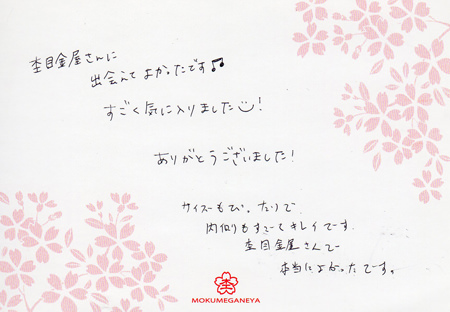 杢目金屋さんに
出会えてよかったです♫
すごく気に入りました☺!
ありがとうございました!
サイズもぴったりで
内側もすごくキレイです
杢目金屋さんで
本当によかったです。
MOKUMEGANEYA